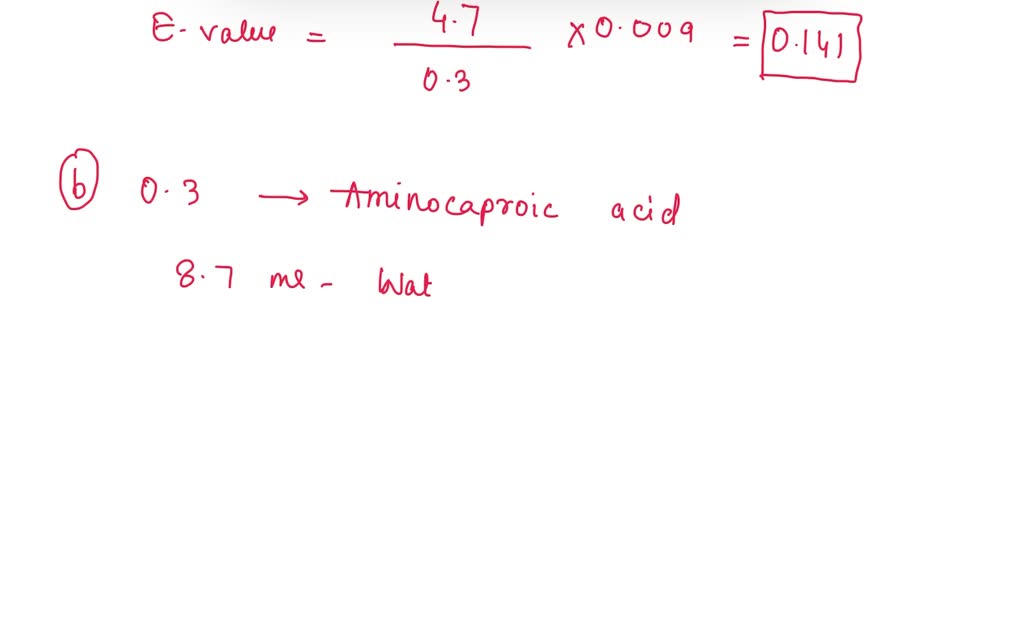 E-value = 4.7 / 0.3 × 0.009 = 0.141
b 0.3 → Aminocaproic acid
8.7 ml - Wat